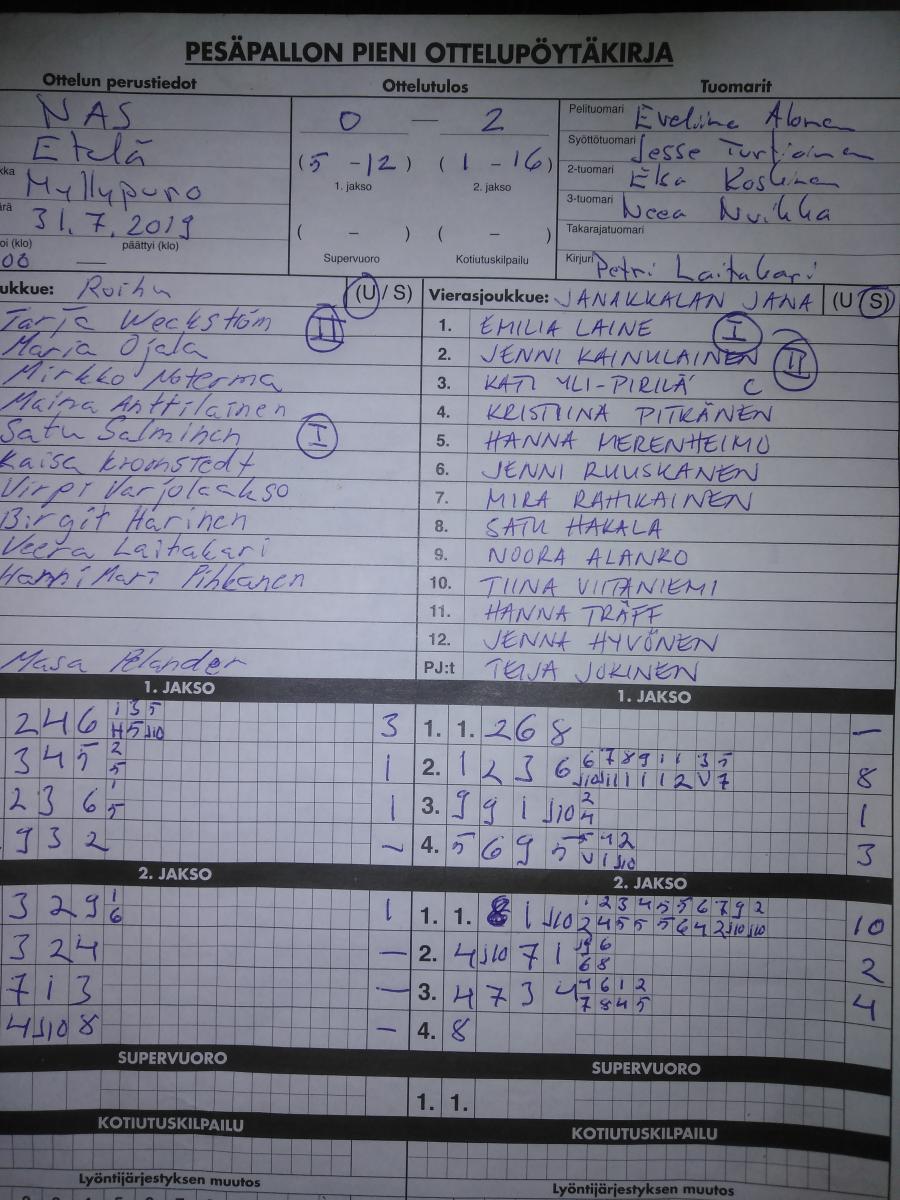 PESÄPALLON PIENI OTTELUPÖYTÄKIRJA
Ottelun perustiedot Ottelutulos Tuomarit
NAS 0 — 2 Pelituomari Eveliina Alonen
Etelä (5 - 12) (1 - 16) Syöttötuomari Jesse Turtiainen
1. jakso 2. jakso
kka Myllypuro 2-tuomari Elsa Koskinen
31.7.2019 ( – ) ( – ) 3-tuomari Neea Nuikka
oi (klo) päättyi (klo) Takarajatuomari
00 — Supervuoro Kotiutuskilpailu Kirjuri Petri Laitakari
ukkue: Roihu (U / S) Vierasjoukkue: JANAKKALAN JANA (U S)
Tarja Weckstöm II 1. EMILIA LAINE I
Maria Ojala 2. JENNI KAINULAINEN II
Mirkko Noterma 3. KATI YLI-PIRILÄ C
Maina Anttilainen 4. KRISTIINA PITKÄNEN
Satu Salminen I 5. HANNA MERENHEIMO
Kaisa Kroonstedt 6. JENNI RUUSKANEN
Virpi Varjolaakso 7. MIRA RAHIKAINEN
Birgit Harinen 8. SATU HAKALA
Veera Laitakari 9. NOORA ALANKO
Hanni Mari Pihkanen 10. TIINA VIITANIEMI
11. HANNA TRÄFF
12. JENNA HYVÖNEN
Masa Pelander PJ:t TEIJA JOKINEN
1. JAKSO 1. JAKSO
2 4 6 1 3 5 3 1. 1. 2 6 8 —
H 5 J10
3 4 5 2 1 2. 1 2 3 6 6 7 8 9 1 1 3 5 8
5 J10 J11 1 1 1 2 V 7
2 3 6 1 1 3. 9 9 1 J10 2 1
5 4
9 3 2 — 4. 5 6 9 5 5 4 2 3
V 1 J10
2. JAKSO 2. JAKSO
3 2 9 1 1 1. 1. 8 1 J10 1 2 3 4 5 5 6 7 9 2 10
6 2 4 5 5 5 6 4 2 J10 J10
3 2 4 — 2. 4 J10 7 1 J9 6 2
6 8
7 1 3 — 3. 4 7 3 4 4 6 1 2 4
7 8 4 5
4 J10 8 — 4. 8
SUPERVUORO SUPERVUORO
1. 1.
KOTIUTUSKILPAILU KOTIUTUSKILPAILU
Lyöntijärjestyksen muutos Lyöntijärjestyksen muutos